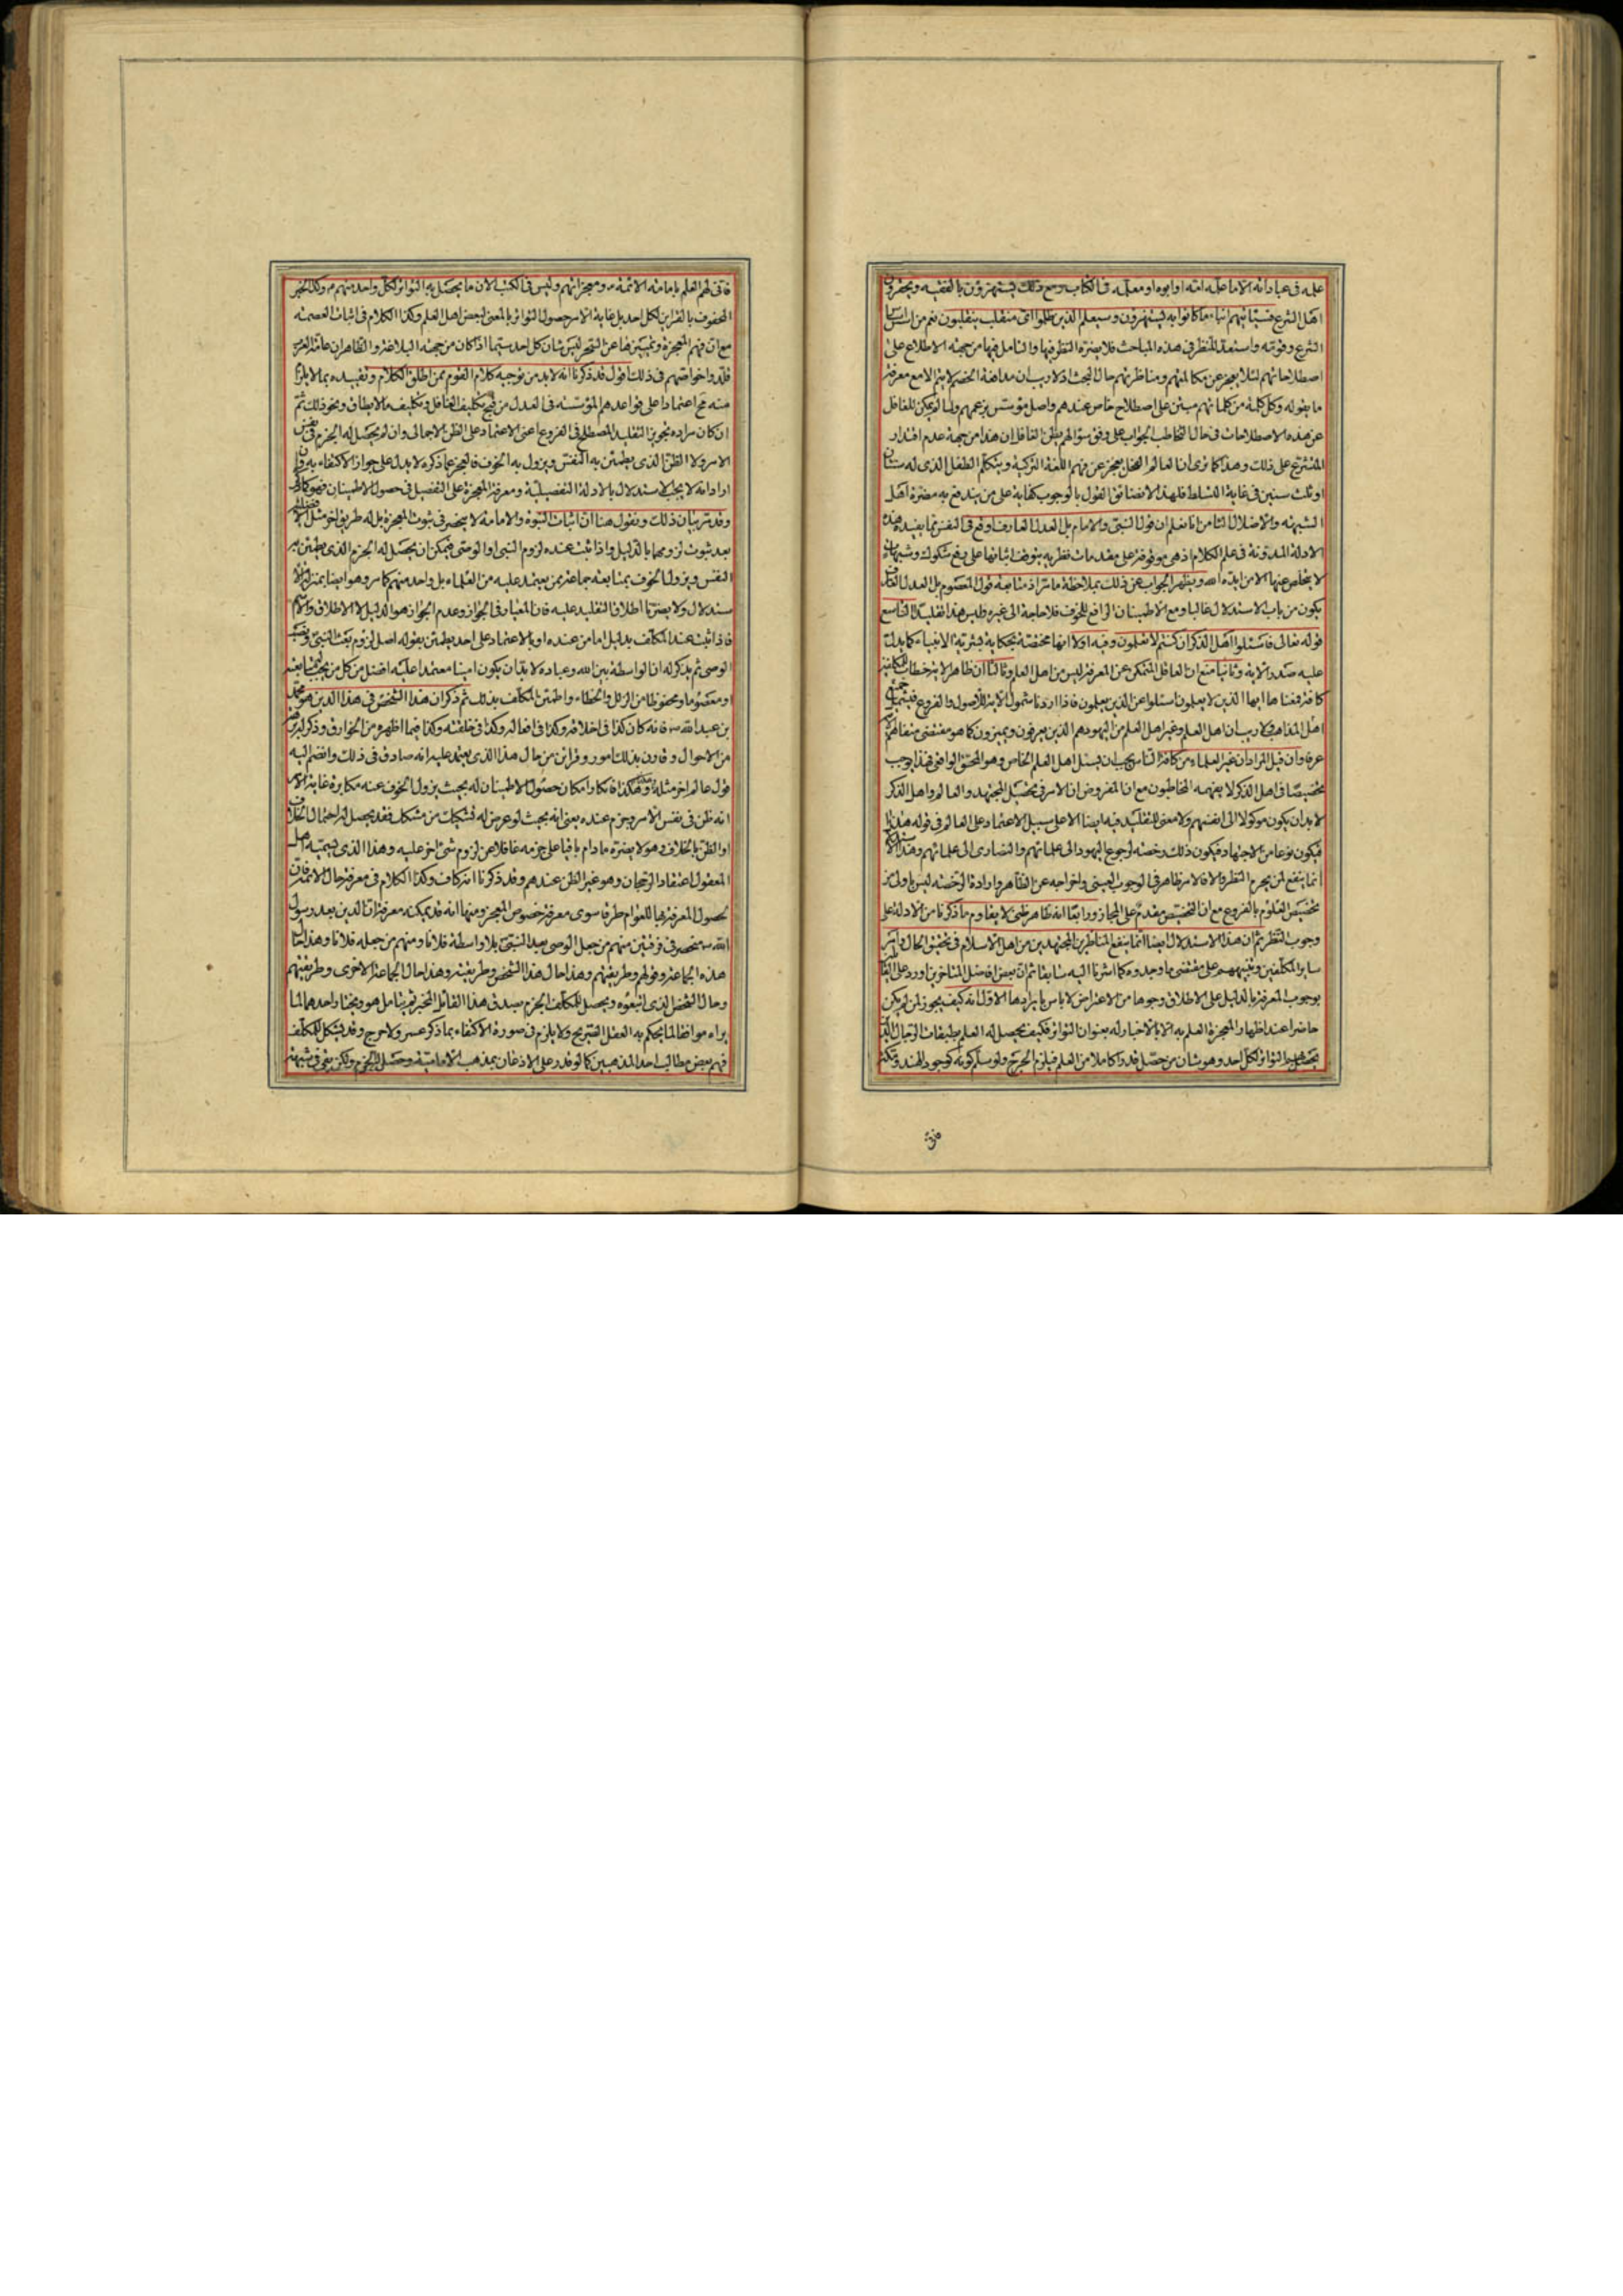 علمه فی عباداته الا ما علمه امه او ابوه او معلمه فی الکتاب ومع ذلک یستهزؤن بالفقیه ویحقرون
اهل الشرع فسیاتیهم انباء ما کانوا به یستهزؤن وسیعلم الذین ظلموا ای منقلب ینقلبون نعم من
الشرع وقوته واستعد للنظر فی هذه المباحث فلا یضره النظر فیها والتامل فیها من جهة الاطلاع علی
اصطلاحاتهم لئلا یعجز عن مکالمتهم ومناظرتهم حال البحث اذ لا ریب ان مدافعة الخصم لا یتم الا مع معرفة
ما یقوله وکل کلمة من کلماتهم مبتن علی اصطلاح خاص عندهم واصل مؤسس بزعمهم ولما لم یکن للغافل
عن هذه الاصطلاحات فی حال التخاطب الجواب علی وفق سؤالهم یظن الغافل ان هذا من جهة عدم اقتدار
المتشرع علی ذلک وهذا کما تری ان العالم الفحل یعجز عن فهم اللغة الترکیة ویتکلم الطفل الذی له سنتان
او ثلث سنین فی غایة النشاط فلهذا لا نضائق القول بالوجوب کفایة علی من یندفع به مضرة اهل
الشبهة والاضلال الثامن انا نعلم ان قول النبی والامام بل العدل العارف اوقع فی النفس مما یفیده هذه
الادلة المدونة فی علم الکلام اذ هی موقوفة علی مقدمات نظریة یتوقف اثباتها علی دفع شکوک وشبهات
لا یتخلص عنها الا من ایده الله ویظهر الجواب عن ذلک بملاحظة ما مر اذ متابعة قول المعصوم بل العدل العارف
یکون من باب الاستدلال غالبا ومع الاطمینان الرافع للخوف فلا حاجة الی غیره ولیس هذا تقلیدا التاسع
قوله تعالی فاسئلوا اهل الذکر ان کنتم لا تعلمون وفیه اولا انها مختصة بحکایة بشریة الانبیاء کما یدل
علیه صدر الایة وثانیا منع ان العاقل المتمکن عن المعرفة لیس من اهل العلم وثالثا ان ظاهر الایة خطاب للمکلفین
کافة فمعناها ایها الذین لا یعلمون اسئلوا عن الذین یعلمون فاذا اردنا شمول الایة للاصول والفروع فیشمل
اهل المذاهب ولا ریب ان اهل العلم وغیر اهل العلم من الیهود هم الذین یعرفون ویمیزون کما هو مقتضی متفاهم
عرفا وان قیل المراد ان غیر العلماء من کافة الناس یجب ان یسئل اهل العلم الخاص وهو المحق الواقعی فهذا یوجب
تخصیصا فی اهل الذکر لا یفهمه المخاطبون مع ان المفروض ان الامر فی تحصیل المجتهد والعالم واهل الذکر
لا بد ان یکون موکولا الی انفسهم ولا معنی للتقلید فیه ایضا الا علی سبیل الاعتماد علی العالم فی قوله هذا
فیکون نوعا من الاجتهاد فیکون ذلک رخصة لرجوع الیهود الی علمائهم والنصاری الی علمائهم وهذا
انما ینفع لمن یحرم النظر والا فالامر ظاهر فی الوجوب العینی واخراجه عن الظاهر وارادة الرخصة لیس باولی من
تخصیص العلوم بالفروع مع ان التخصیص مقدم علی المجاز ورابعا انه ظاهر ظنی لا یقاوم ما ذکرنا من الادلة علی
وجوب النظر ثم ان هذا الاستدلال ایضا انما ینفع المناظرین المجتهدین من اهل الاسلام فی تحقیق الحال
سایر المکلفین وتنبیههم علی مقتضی ما وجدوه کما اشرنا الیه سابقا ثم ان بعض افاضل المتاخرین اورد علی
بوجوب المعرفة بالدلیل علی الاطلاق وجوها من الاعتراض لا باس بایرادها الاول انه کیف یجوز لمن لم یکن
حاضرا عند اظهار المعجزة العلم به الا بالاخبار له بعنوان التواتر فکیف یحصل له العلم بطبقات الرجال
یحصل التواتر لکل احد وهو شان من حصل قدرا کاملا من العلم فیلزم الحرج ولو سلم کونه کوجود الهند ومکة
فانی لهم العلم بامامة الائمة ومعجزاتهم ولیس فی الکتب الان ما یحصل به التواتر لکل واحد منهم وکذا الخبر
المحفوف بالقراین لکل احد بل غایة الامر حصول التواتر بالمعنی لبعض اهل العلم وکذا الکلام فی اثبات العصمة
مع ان فهم المعجزة وتمییزها عن السحر لیس شان کل احد سیما اذا کان من جهة البلاغة والظاهر ان عامة العرب
قلدوا خواصهم فی ذلک اقول قد ذکرنا انه لا بد من توجیه کلام القوم ممن اطلق الکلام وتقییده بما لا یلزم
منه قبح اعتمادا علی قواعدهم المؤسسة فی العدل من قبح تکلیف الغافل وتکلیف ما لا یطاق ونحو ذلک ثم
ان کان مراده تجویز التقلید المصطلح فی الفروع اعنی الاعتماد علی الظن الاجمالی وان لم یحصل له الجزم فی نفس
الامر ولا الظن الذی یطمئن به النفس ویزول به الخوف فالعجز عما ذکره لا یدل علی جواز الاکتفاء به وان
اراد انه لا یجب الاستدلال بالادلة التفصیلیة ومعرفة المعجزة علی التفصیل فی حصول الاطمینان فهو کذلک
وقد مر بیان ذلک ونقول هنا ان اثبات النبوة والامامة لا ینحصر فی ثبوت المعجزة بل له طریق اخر مثل
بعد ثبوت لزومهما بالدلیل واذا ثبت عنده لزوم النبی او الوصی فیمکن ان یحصل له الجزم الذی یطمئن به
النفس ویزول الخوف بمتابعة جماعة ممن یعتمد علیه من العلماء بل واحد منهم کما مر وهو ایضا بمنزلة الا
ستدلال ولا یضرنا اطلاق التقلید علیه فان المعیار فی الجواز وعدم الجواز هو الدلیل لا الاطلاق والاسم
فاذا ثبت عند المکلف بدلیل اما من عنده او بالاعتماد علی احد یطمئن بقوله اصل لزوم بعث النبی ونصب
الوصی ثم یذکر له ان الواسطة بین الله وعباده لا بد ان یکون امینا معتمدا علیه افضل من کل من یجب متابعته
او معصوما ومحفوظا من الزلل والخطاء واطمئن المکلف بذلک ثم ذکر ان هذا الشخص فی هذا الدین هو محمد
بن عبد الله فانه کان کذا فی اخلاقه وکذا فی افعاله وکذا فی خلقته وکذا فیما اظهره من الخوارق وذکر له
من الاحوال وقارن بذلک امور وقراین من حال هذا الذی یعتمد علیه انه صادق فی ذلک وانضم الیه
قول عالم اخر مثله وهکذا فانکار امکان حصول الاطمینان له بحیث یزول الخوف عنه مکابرة غایة الامر
انه ظن فی نفس الامر وجزم عنده یعنی انه بحیث لو عرض له تشکیک من مشکک فقد یحصل له احتمال الخلاف
او الظن بالخلاف وهو لا یضره ما دام باقیا علی جزمه غافلا عن لزوم شیء اخر علیه وهذا الذی یسمیه اهل
المعقول اعتقاد الرجحان وهو غیر الظن عندهم وقد ذکرنا انه کاف وکذا الکلام فی معرفة حال الائمة فان
لحصول المعرفة بها للعوام طرقا سوی معرفة خصوص المعجز ومنها انه قد یمکنه معرفة ان الدین بعد رسول
الله منحصر فی فرقتین منهم من جعل الوصی بعد النبی بلا واسطة فلانا ومنهم من جعله فلانا وهذا
هذه الجماعة وقولهم وطریقتهم وهذا حال هذا الشخص وطریقته وهذا حال الجماعة الاخری وطریقتهم
وحال الشخص الذی اتبعوه ویحصل للمکلف الجزم بصدق هذا القائل المخبر ثم یتامل هو ویختار احدهما لما
یراه موافقا لما یحکم به العقل الصریح ولا یلزم فی صورة الاکتفاء بما ذکر عسر ولا حرج وقد یشکل للمکلف
فهم بعض مطالب احد المذهبین کما لو قدر علی الاذعان بمذهب الامامیة وحصل له الجزم ولکن بقی فی شبهة